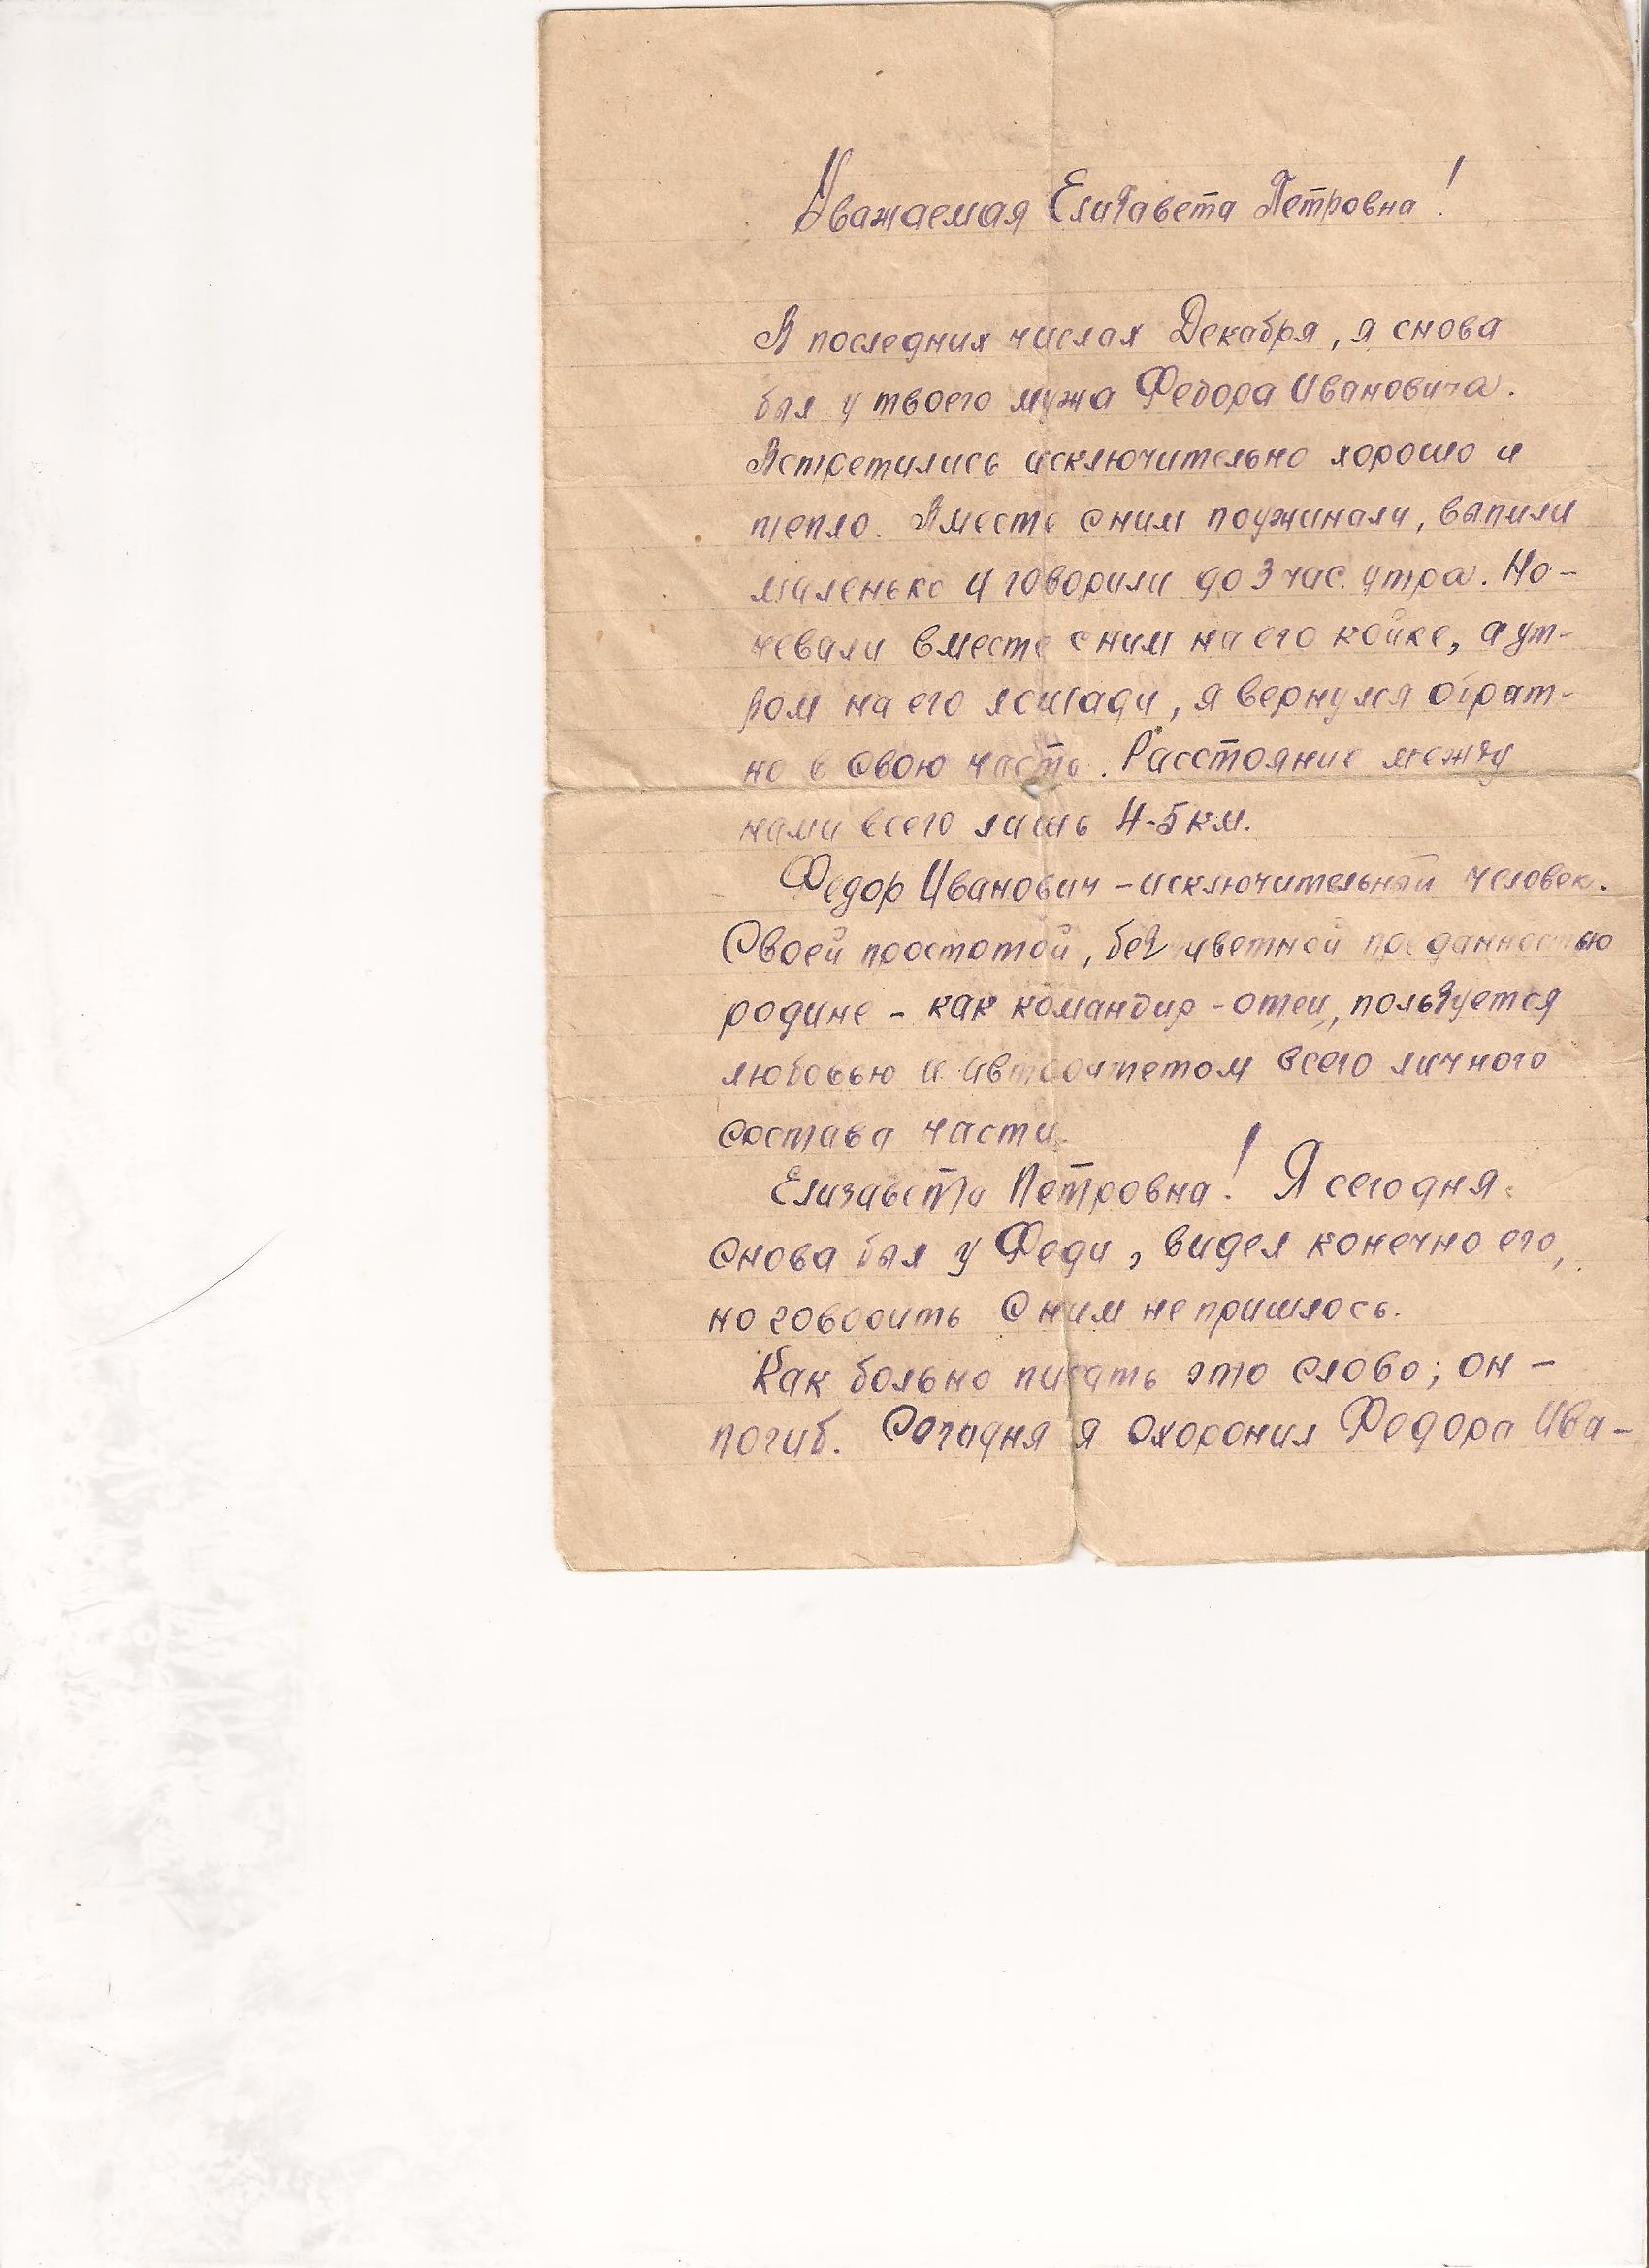 Уважаемая Елизавета Петровна!
В последних числах Декабря, я снова
был у твоего мужа Федора Ивановича.
Встретились исключительно хорошо и
тепло. Вместе с ним поужинали, выпили
маленько и говорили до 3 час. утра. Но-
чевали вместе с ним на его койке, а ут-
ром на его лошади, я вернулся обрат-
но в свою часть. Расстояние между
нами всего лишь 4-5 км.
Федор Иванович - исключительный человек.
Своей простотой, беззаветной преданностью
родине - как командир - отец, пользуется
любовью и авторитетом всего личного
состава части.
Елизавета Петровна! Я сегодня
снова был у Феди, видел конечно его,
но говорить с ним не пришлось.
Как больно писать это слово; он -
погиб. Сегодня я схоронил Федора Ива-